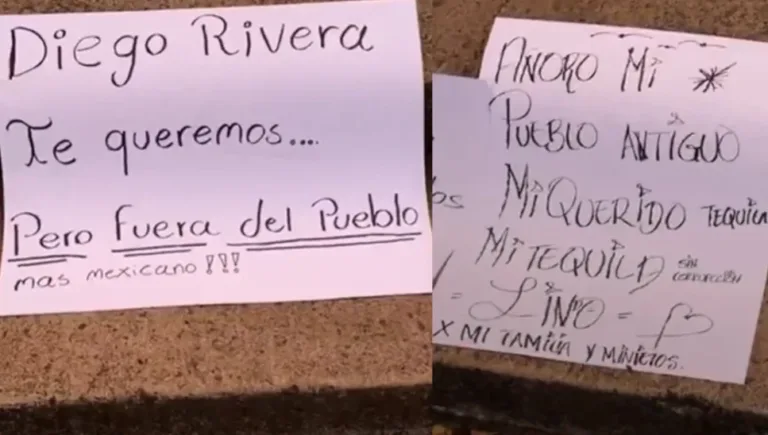 Diego Rivera
Te queremos...
Pero fuera del Pueblo
mas mexicano !!!
AÑORO Mi *
PUEBLO ANTIGUO
Mi QUERIDO TEQUILA
Mi TEQUILA SIN
CORRUPCIÓN
= LINO =
X MI FAMILIA Y MI NIETOS.